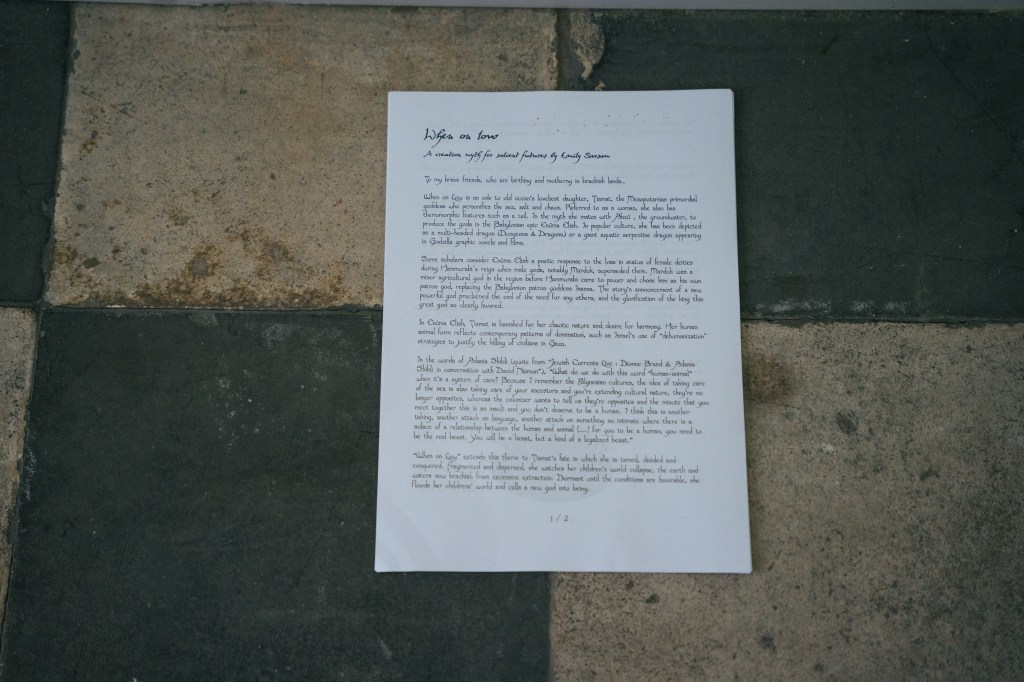 When on low
A creation myth for salient futures by Emily Sarsam
To my brave friends, who are birthing and mothering in brackish lands..
When on Low is an ode to old ocean's loveliest daughter, Tiamat, the Mesopotamian primordial
goddess who personifies the sea, salt and chaos. Referred to as a woman, she also has
theriomorphic features such as a tail. In the myth she mates with Abzu, the groundwater, to
produce the gods in the Babylonian epic Enūma Elish. In popular culture, she has been depicted
as a multi-headed dragon (Dungeons & Dragons) or a giant aquatic serpentine dragon appearing
in Godzilla graphic novels and films.
Some scholars consider Enūma Elish a poetic response to the loss in status of female deities
during Hammurabi's reign when male gods, notably Marduk, superseded them. Marduk was a
minor agricultural god in the region before Hammurabi came to power and chose him as his own
patron god, replacing the Babylonian patron goddess Inanna. The story's announcement of a new
powerful god proclaimed the end of the need for any others, and the glorification of the king this
great god so clearly favored.
In Enūma Elish, Tiamat is banished for her chaotic nature and desire for harmony. Her human
animal form reflects contemporary patterns of domination, such as Israel's use of "dehumanization"
strategies to justify the killing of civilians in Gaza.
In the words of Adania Shibli (quote from "Jewish Currents Live : Dionne Brand & Adania
Shibli in conversation with David Naimon"), "What do we do with this word "human-animal"
when it's a system of care? Because I remember the Polynesian cultures, the idea of taking care
of the sea is also taking care of your ancestors and you're extending cultural nature, they're no
longer opposites, whereas the colonizer wants to tell us they're opposites and the minute that you
meet together this is an insult and you don't deserve to be a human. I think this is another
taking, another attack on language, another attack on something so intimate where there is a
solace of a relationship between the human and animal [...] for you to be a human, you need to
be the real beast. You will be a beast, but a kind of a legalized beast."
"When on Low" extends this theme to Tiamat's fate in which she is tamed, divided and
conquered. Fragmented and dispersed, she watches her children's world collapse, the earth and
waters now brackish from excessive extraction. Dormant until the conditions are favorable, she
floods her childrens' world and calls a new god into being.
1 / 2